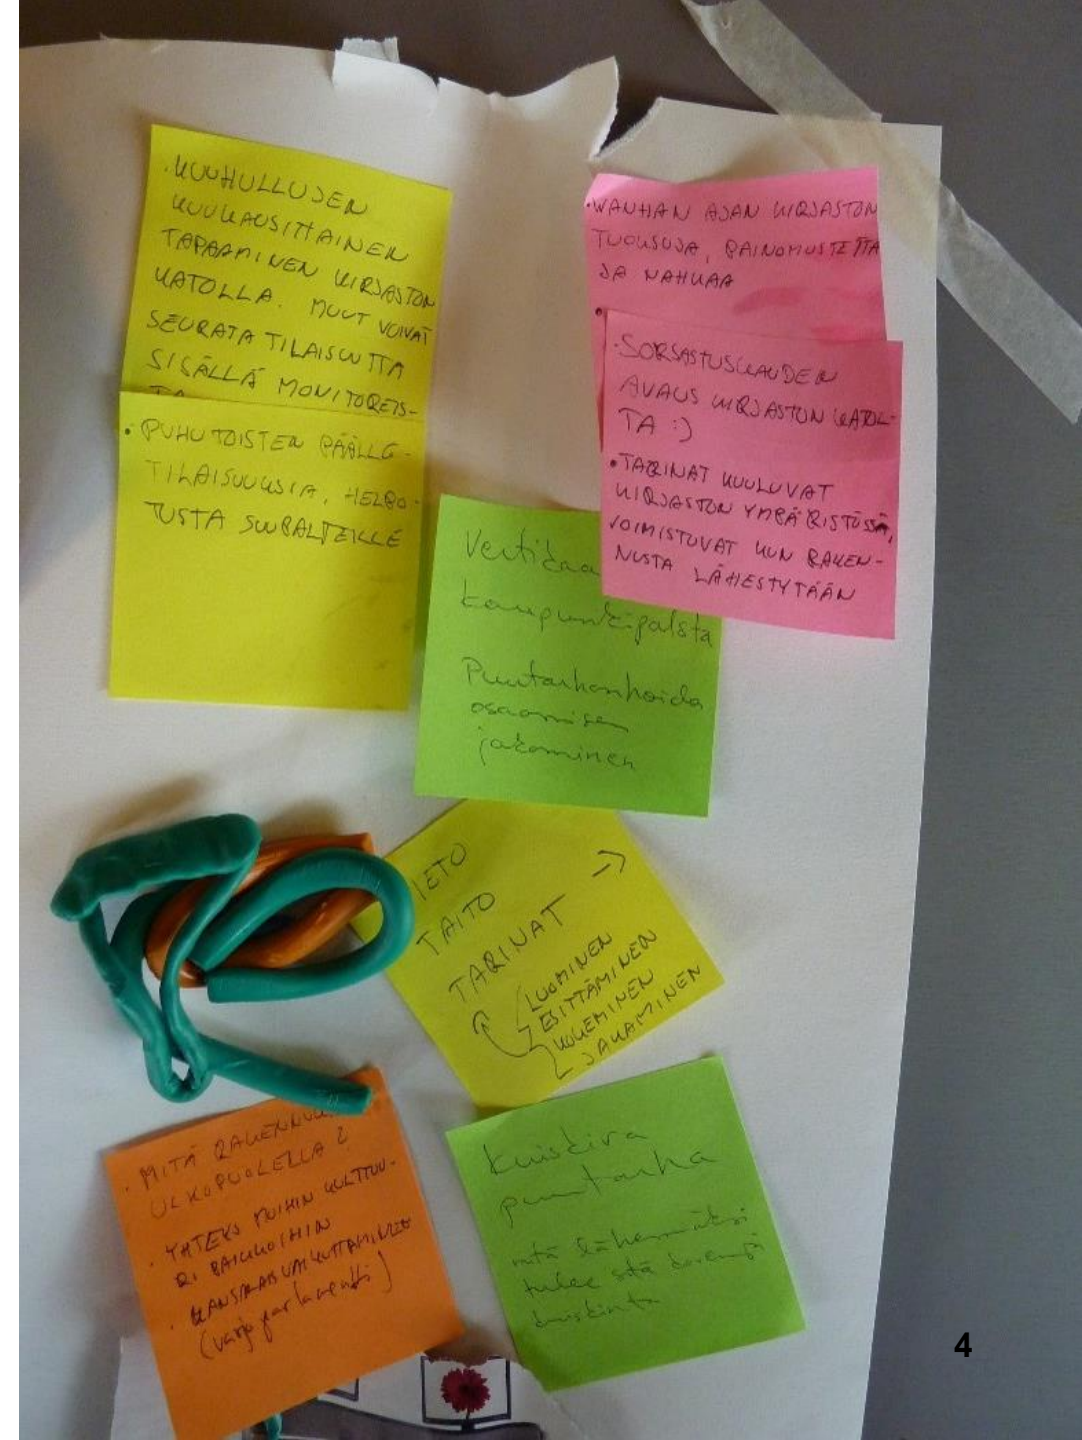 · KUUHULLUJEN
KUUKAUSITTAINEN
TAPAAMINEN KIRJASTON
KATOLLA. MUUT VOIVAT
SEURATA TILAISUUTTA
SISÄLLÄ MONITOREIS-
TA
· PUHU TOISTEN PÄÄLLE -
TILAISUUKSIA, HELPO-
TUSTA SUBALTEILLE
· WANHAN AJAN KIRJASTON
TUOKSUJA, PAINOMUSTETTA
JA NAHKAA
· SORSASTUSKAUDEN
AVAUS KIRJASTON KATOL-
TA :)
· TARINAT KUULUVAT
KIRJASTON YMPÄRISTÖSSÄ,
VOIMISTUVAT KUN RAKEN-
NUSTA LÄHESTYTÄÄN
kaupunkipalsta
Puutarhanhoida
osaamisen
jakaminen
TAITO
TARINAT →
LUOMINEN
ESITTÄMINEN
KOKEMINEN
JAKAMINEN
· MITÄ
ULKOPUOLELLA?
· YHTEYS MUIHIN KULTTUU-
RI PAIKKOIHIN
· KANSALAISVAIKUTTAMINEN
(varjoparlamentti)
Kuiskiva
puutarha
mitä lähemmäksi
tulee sitä kovempi
kuiskinta
4